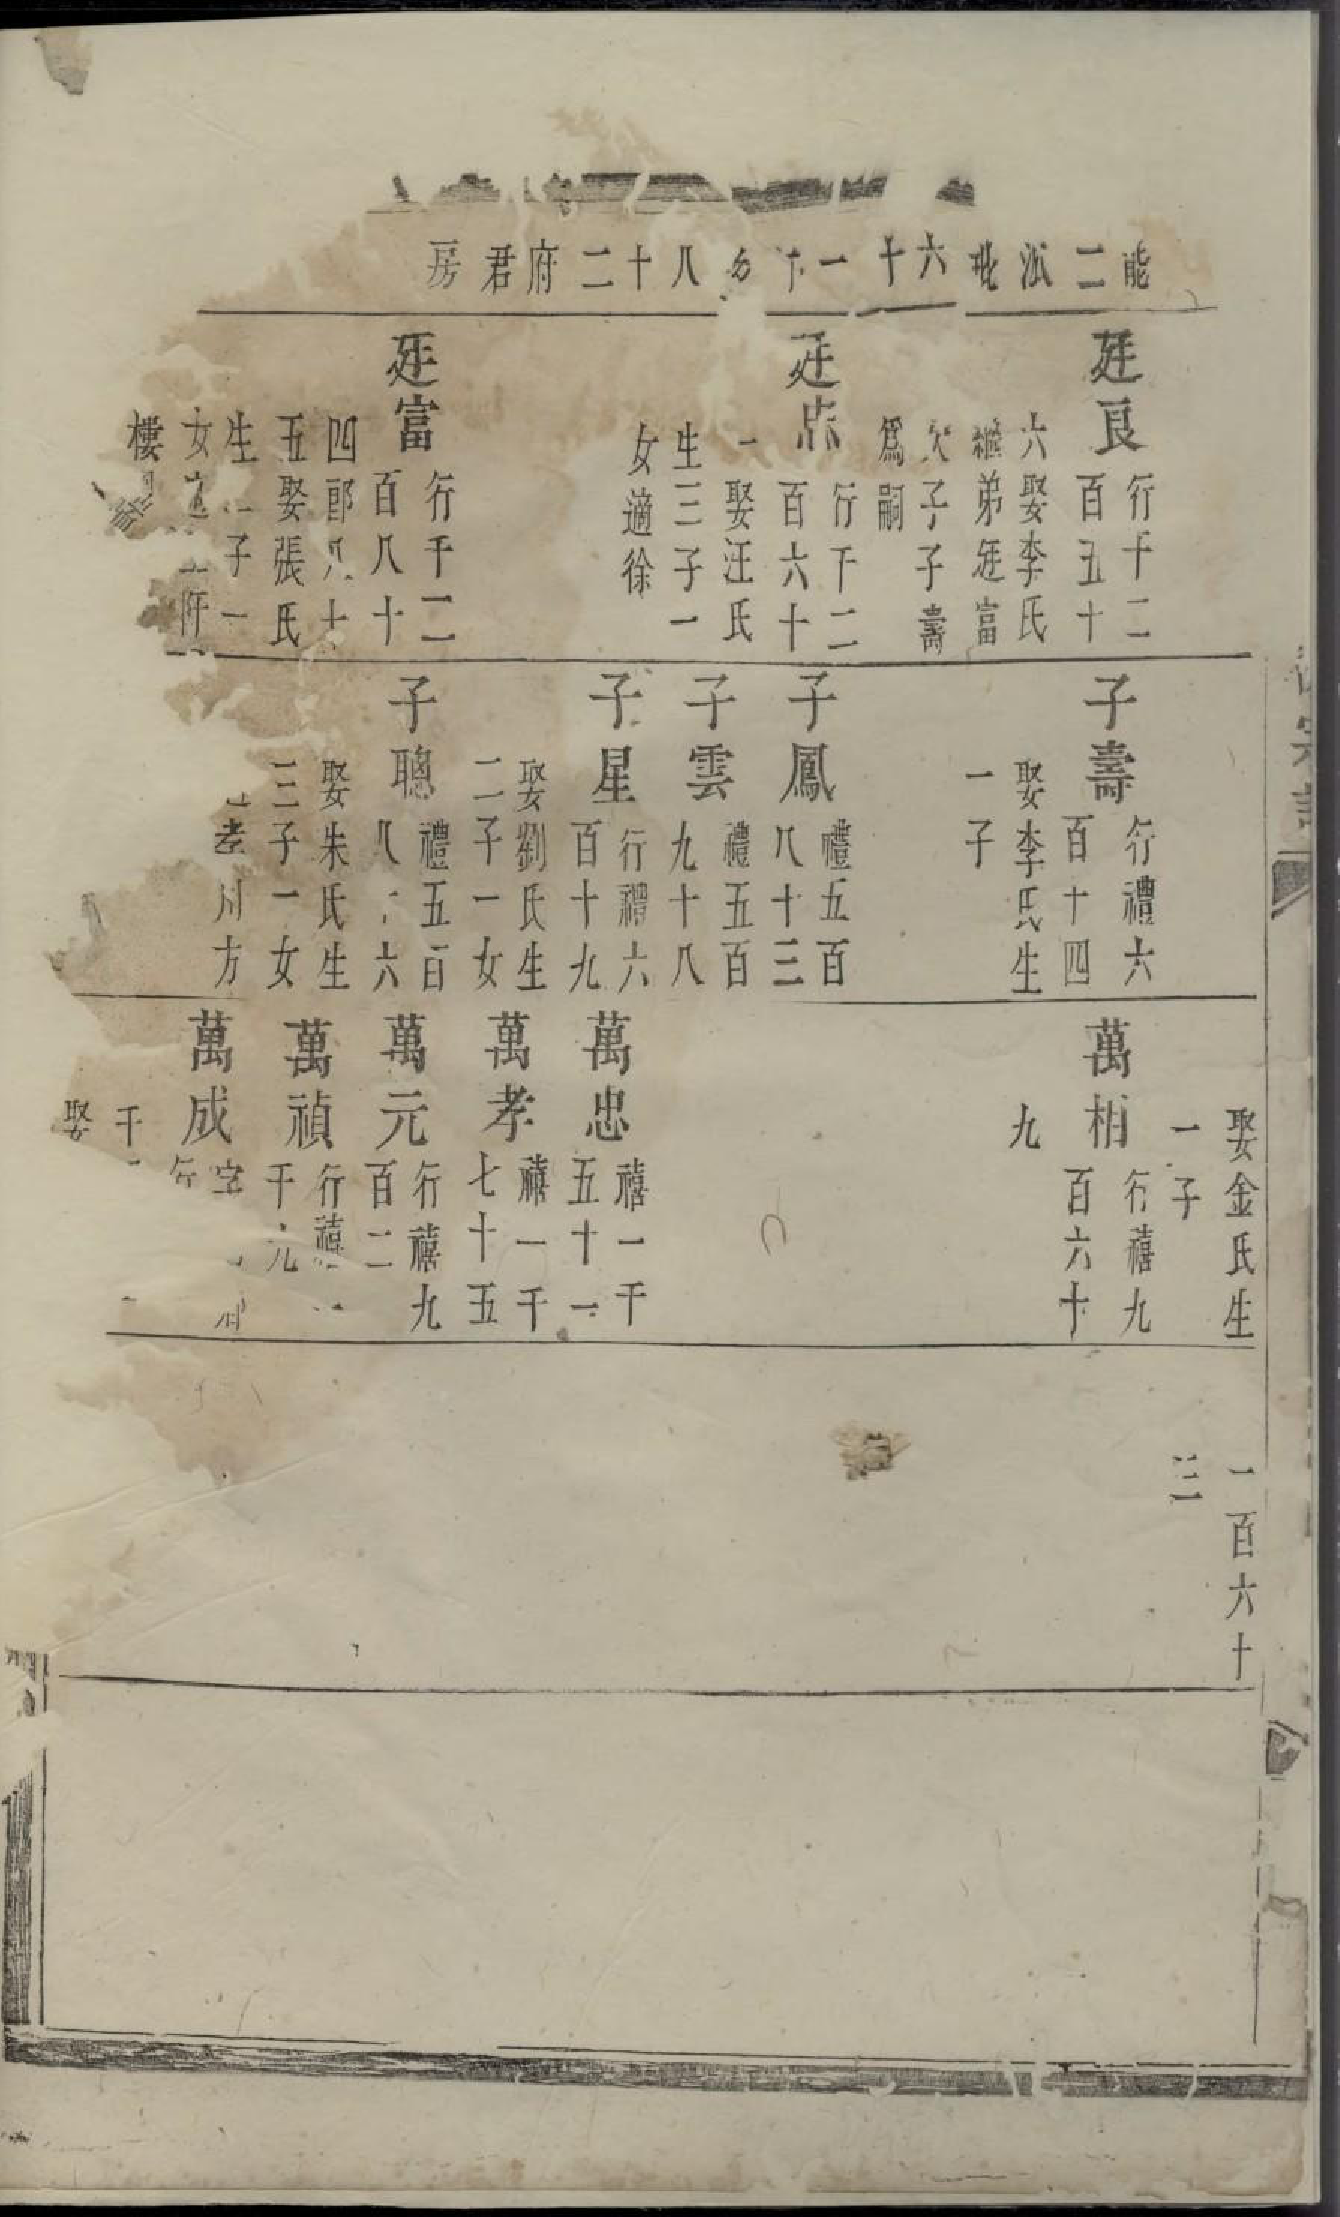 能二派批六十一下分八十二府君房
廷良
行千二
百五十
六娶李氏
繼弟廷富
次子子壽
爲嗣
廷
行千二
百六十
一娶汪氏
生三子一
女適徐
廷富
行千二
百八十
四郎八十
五娶張氏
生一子一
女
樓
子壽
行禮六
百十四
娶李氏生
一子
子鳳
禮五百
八十三
子雲
禮五百
九十八
子星
行禮六
百十九
娶劉氏生
二子一女
子聰
禮五百
八十六
娶朱氏生
三子一女
孝川方
娶金氏生
一子
萬梢
行禧九
百六十
九
萬忠
禧一千
五十一
萬孝
禧一千
七十五
萬元
行禧九
百二
萬禎
行禧
千九
萬成
字
行
千
娶
一百六十
三